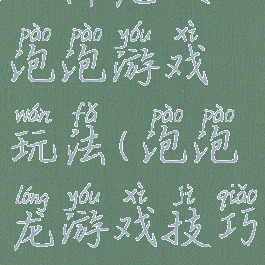 pào pào yóu xì
泡泡游戏
wán fǎ pào pào
玩法(泡泡
lóng yóu xì jì qiǎo
龙游戏技巧